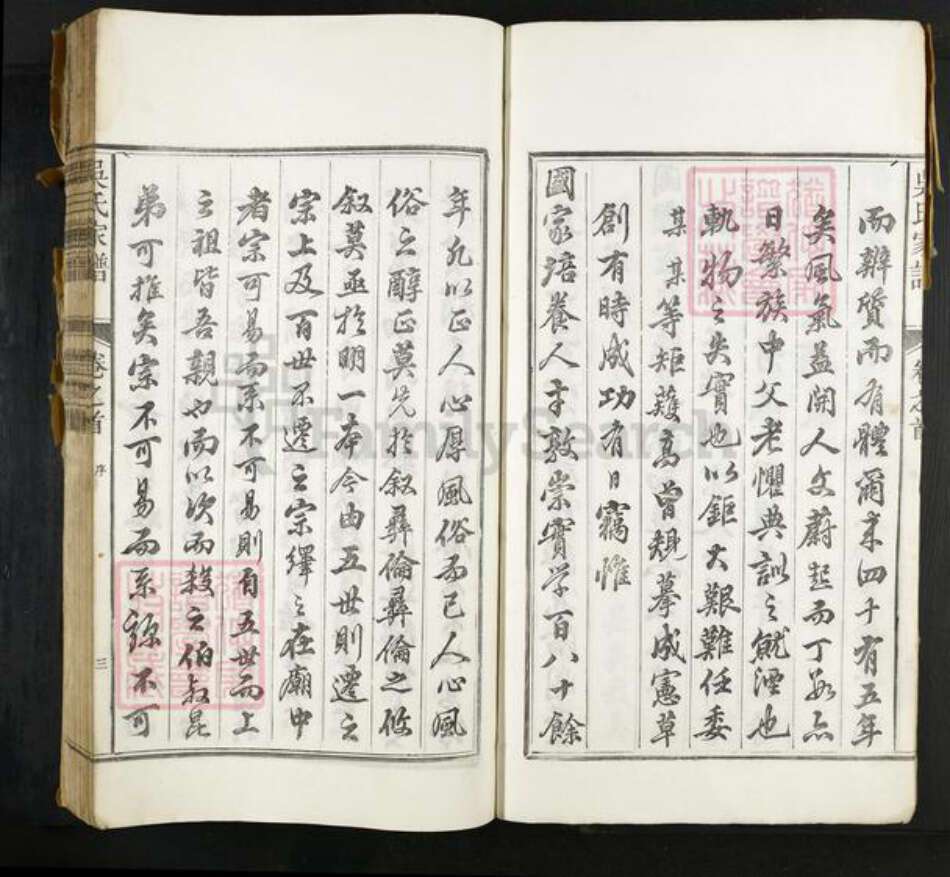 而辨質而有體爾来四十有五年
矣風氣益開人文蔚起而丁口亦
日繁族中父老懼典訓之就湮也
軌物之失實也以鉅大艱難任委
某某等矩矱高曾規摹成憲草
創有時成功有日竊惟
國家涪養人才敦崇實学百八十餘
年凡以正人心厚風俗而已人心風
俗之醇正莫先於叙彝倫彝倫之攸
叙莫亟於明一本今由五世則遷之
宗上及百世不遷之宗繹之在廟中
者宗可易而系不可易則自五世而上
之祖皆吾親也而以次而殺之伯叔昆
弟可推矣宗不可易而系不可
吳氏家譜
卷之首
序
三
吳氏家譜
卷之首
FamilySearch